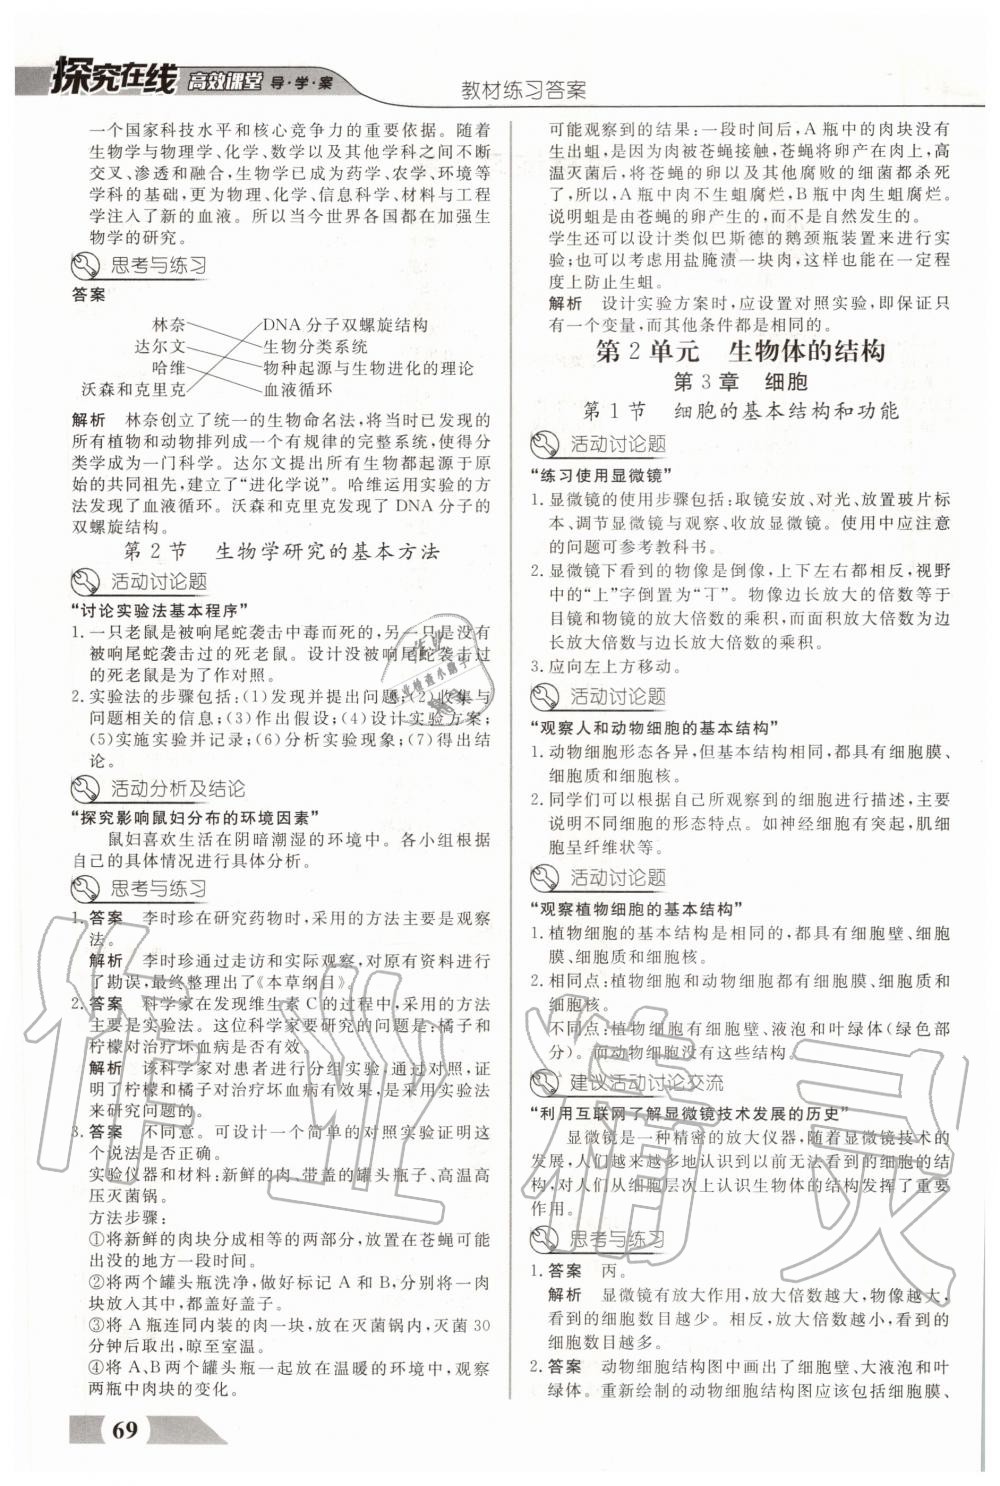 探究在线 高效课堂 导·学·案
教材练习答案
一个国家科技水平和核心竞争力的重要依据。随着
生物学与物理学、化学、数学以及其他学科之间不断
交叉、渗透和融合，生物学已成为药学、农学、环境等
学科的基础，更为物理、化学、信息科学、材料与工程
学注入了新的血液。所以当今世界各国都在加强生
物学的研究。
思考与练习
答案
林奈 DNA 分子双螺旋结构
达尔文 生物分类系统
哈维 物种起源与生物进化的理论
沃森和克里克 血液循环
解析 林奈创立了统一的生物命名法，将当时已发现的
所有植物和动物排列成一个有规律的完整系统，使得分
类学成为一门科学。达尔文提出所有生物都起源于原
始的共同祖先，建立了“进化学说”。哈维运用实验的方
法发现了血液循环。沃森和克里克发现了 DNA 分子的
双螺旋结构。
第 2 节 生物学研究的基本方法
活动讨论题
“讨论实验法基本程序”
1. 一只老鼠是被响尾蛇袭击中毒而死的，另一只是没有
被响尾蛇袭击过的死老鼠。设计没被响尾蛇袭击过
的死老鼠是为了作对照。
2. 实验法的步骤包括：(1)发现并提出问题；(2)收集与
问题相关的信息；(3)作出假设；(4)设计实验方案；
(5)实施实验并记录；(6)分析实验现象；(7)得出结
论。
活动分析及结论
“探究影响鼠妇分布的环境因素”
鼠妇喜欢生活在阴暗潮湿的环境中。各小组根据
自己的具体情况进行具体分析。
思考与练习
1. 答案 李时珍在研究药物时，采用的方法主要是观察
法。
解析 李时珍通过走访和实际观察，对原有资料进行
了勘误，最终整理出了《本草纲目》。
2. 答案 科学家在发现维生素 C 的过程中，采用的方法
主要是实验法。这位科学家要研究的问题是：橘子和
柠檬对治疗坏血病是否有效。
解析 该科学家对患者进行分组实验，通过对照，证
明了柠檬和橘子对治疗坏血病有效果，是采用实验法
来研究问题的。
3. 答案 不同意。可设计一个简单的对照实验证明这
个说法是否正确。
实验仪器和材料：新鲜的肉、带盖的罐头瓶子、高温高
压灭菌锅。
方法步骤：
①将新鲜的肉块分成相等的两部分，放置在苍蝇可能
出没的地方一段时间。
②将两个罐头瓶洗净，做好标记 A 和 B，分别将一肉
块放入其中，都盖好盖子。
③将 A 瓶连同内装的肉一块，放在灭菌锅内，灭菌 30
分钟后取出，晾至室温。
④将 A、B 两个罐头瓶一起放在温暖的环境中，观察
两瓶中肉块的变化。
69
可能观察到的结果：一段时间后，A 瓶中的肉块没有
生出蛆，是因为肉被苍蝇接触，苍蝇将卵产在肉上，高
温灭菌后，将苍蝇的卵以及其他腐败的细菌都杀死
了，所以，A 瓶中肉不生蛆腐烂，B 瓶中肉生蛆腐烂。
说明蛆是由苍蝇的卵产生的，而不是自然发生的。
学生还可以设计类似巴斯德的鹅颈瓶装置来进行实
验；也可以考虑用盐腌渍一块肉，这样也能在一定程
度上防止生蛆。
解析 设计实验方案时，应设置对照实验，即保证只
有一个变量，而其他条件都是相同的。
第 2 单元 生物体的结构
第 3 章 细胞
第 1 节 细胞的基本结构和功能
活动讨论题
“练习使用显微镜”
1. 显微镜的使用步骤包括：取镜安放、对光、放置玻片标
本、调节显微镜与观察、收放显微镜。使用中应注意
的问题可参考教科书。
2. 显微镜下看到的物像是倒像，上下左右都颠倒，视野
中的“上”字倒置为“丅”。物像边长放大的倍数等于
目镜和物镜的放大倍数的乘积，而面积放大倍数为
长放大倍数与边长放大倍数的乘积。
3. 应向左上方移动。
活动讨论题
“观察人和动物细胞的基本结构”
1. 动物细胞形态各异，但基本结构相同，都具有细胞膜、
细胞质和细胞核。
2. 同学们可以根据自己所观察到的细胞进行描述，主要
说明不同细胞的形态特点。如神经细胞有突起，肌细
胞呈纤维状等。
活动讨论题
“观察植物细胞的基本结构”
1. 植物细胞的基本结构是相同的，都具有细胞壁、细胞
膜、细胞质和细胞核。
2. 相同点：植物细胞和动物细胞都有细胞膜、细胞质和
细胞核。
不同点：植物细胞有细胞壁、液泡和叶绿体(绿色部
分)。而动物细胞没有这些结构。
建议活动讨论交流
“利用互联网了解显微镜技术发展的历史”
显微镜是一种精密的放大仪器，随着显微镜技术的
发展，人们越来越多地认识到以前无法看到的细胞的结
构，对人们从细胞层次上认识生物体的结构发挥了重要
作用。
思考与练习
1. 答案 丙。
解析 显微镜有放大作用，放大倍数越大，物像越大，
看到的细胞数目越少。相反，放大倍数越小，看到的
细胞数目越多。
2. 答案 动物细胞结构图中画出了细胞壁、大液泡和叶
绿体。重新绘制的动物细胞结构图应该包括细胞膜、
作业精灵